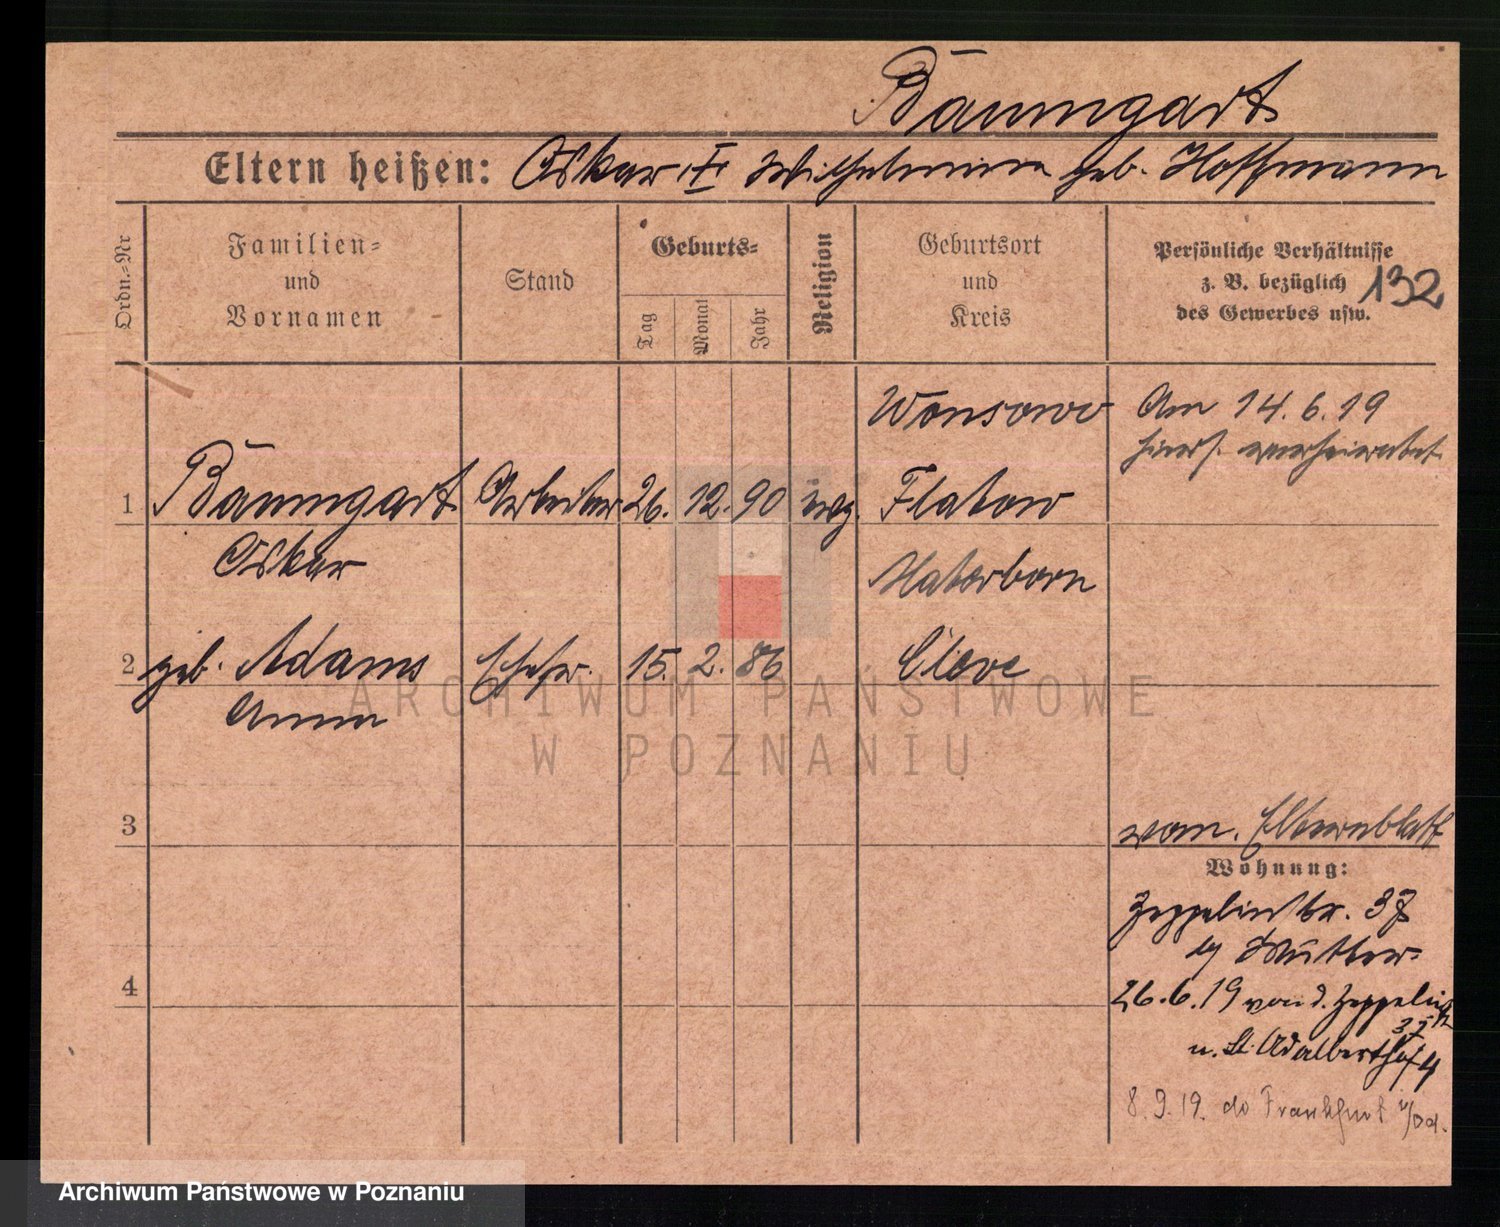 Baumgart
Eltern heißen: Oskar, I Wilhelmina geb. Hoffmann
Ordn.-Nr
Familien-
und
Vornamen
Stand
Geburts-
Tag
Monat
Jahr
Religion
Geburtsort
und
Kreis
Persönliche Verhältnisse
z. B. bezüglich
des Gewerbes usw.
132
Wonsowo
Am 14.6.19
hiers. verheiratet.
1 Baumgart Arbeiter 26. 12. 90 evg. Flatow
Oskar
Haterborn
2 geb. Adams Ehefr. 15. 2. 86 Cleve
Anna
3
vom. Elternblatt
Wohnung:
Zeppelinstr. 37
b/ Mutter
4
26.6.19 von d. Zeppelinstr
37
n. St. Adalberthof 4
8.9.19. do Frankfurt n/Od.
ARCHIWUM PAŃSTWOWE
W POZNANIU
Archiwum Państwowe w Poznaniu